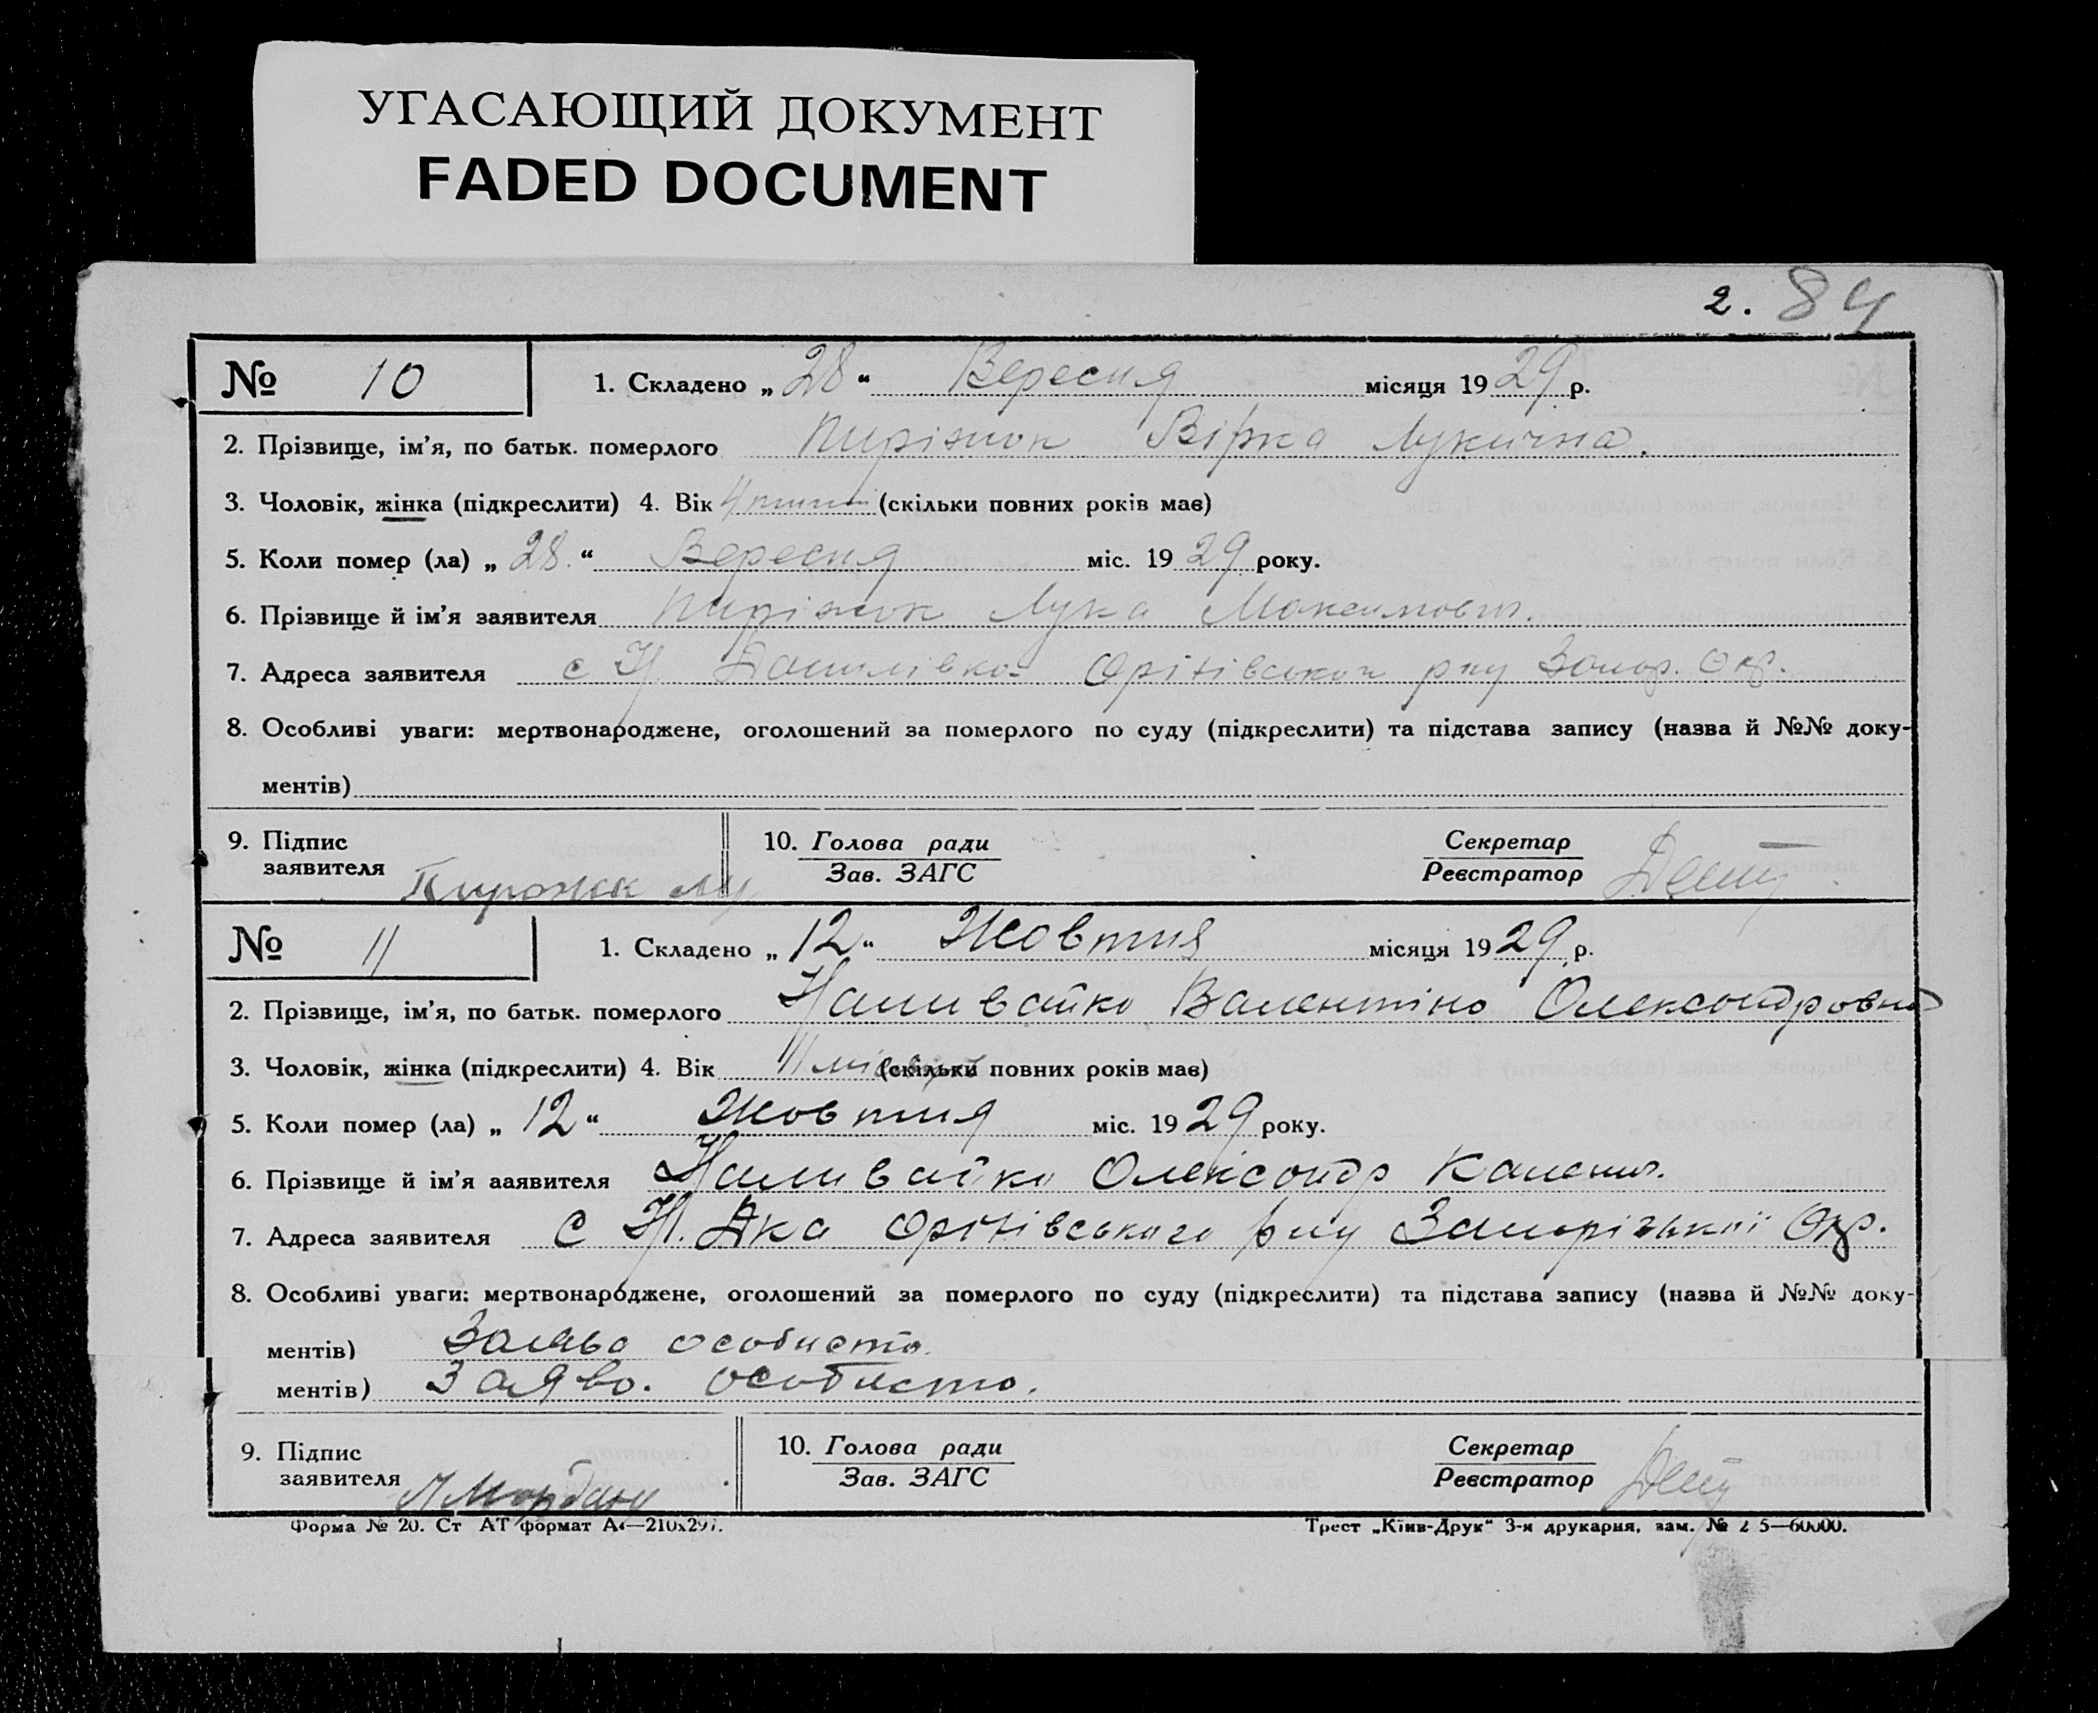 УГАСАЮЩИЙ ДОКУМЕНТ
FADED DOCUMENT
2. 84
№ 10 1. Складено „28“ Вересня місяця 1929 р.
2. Прізвище, ім'я, по батьк. померлого Пиріжок Вірка Лукична.
3. Чоловік, жінка (підкреслити) 4. Вік 4 (скільки повних років має)
5. Коли помер (ла) „28.“ Вересня міс. 1929 року.
6. Прізвище й ім'я заявителя Пиріжок Лука Максимович.
7. Адреса заявителя с Н Данилівка Оріхівського рну Запор. Окр.
8. Особливі уваги: мертвонароджене, оголошений за померлого по суду (підкреслити) та підстава запису (назва й №№ доку-
ментів)
9. Підпис заявителя 10. Голова ради Зав. ЗАГС Секретар Реєстратор
№ 11 1. Складено „12“ Жовтня місяця 1929 р.
2. Прізвище, ім'я, по батьк. померлого Наливайко Валентіна Олександровна
3. Чоловік, жінка (підкреслити) 4. Вік 11 місяців (скільки повних років має)
5. Коли помер (ла) „12“ Жовтня міс. 1929 року.
6. Прізвище й ім'я ааявителя Наливайко Олександр
7. Адреса заявителя с Н. Дка Оріхівського рну Запорізької Окр.
8. Особливі уваги: мертвонароджене, оголошений за померлого по суду (підкреслити) та підстава запису (назва й №№ доку-
ментів) Заява особиста.
ментів) Заява. особиста.
9. Підпис заявителя 10. Голова ради Зав. ЗАГС Секретар Реєстратор
Форма № 20. Ст АТ формат А4—210х297. Трест „Київ-Друк“ 3-я друкарня, зам. №